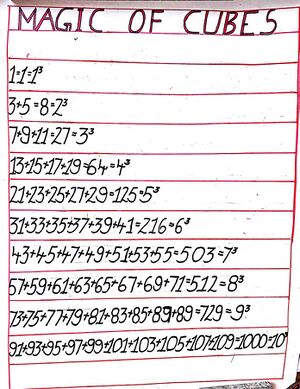 MAGIC OF CUBES
1=1=1³
3+5=8=2³
7+9+11=27=3³
13+15+17+19=64=4³
21+23+25+27+29=125=5³
31+33+35+37+39+41=216=6³
43+45+47+49+51+53+55=503=7³
57+59+61+63+65+67+69+71=512=8³
73+75+77+79+81+83+85+89+89=729=9³
91+93+95+97+99+101+103+105+107+109=1000=10³